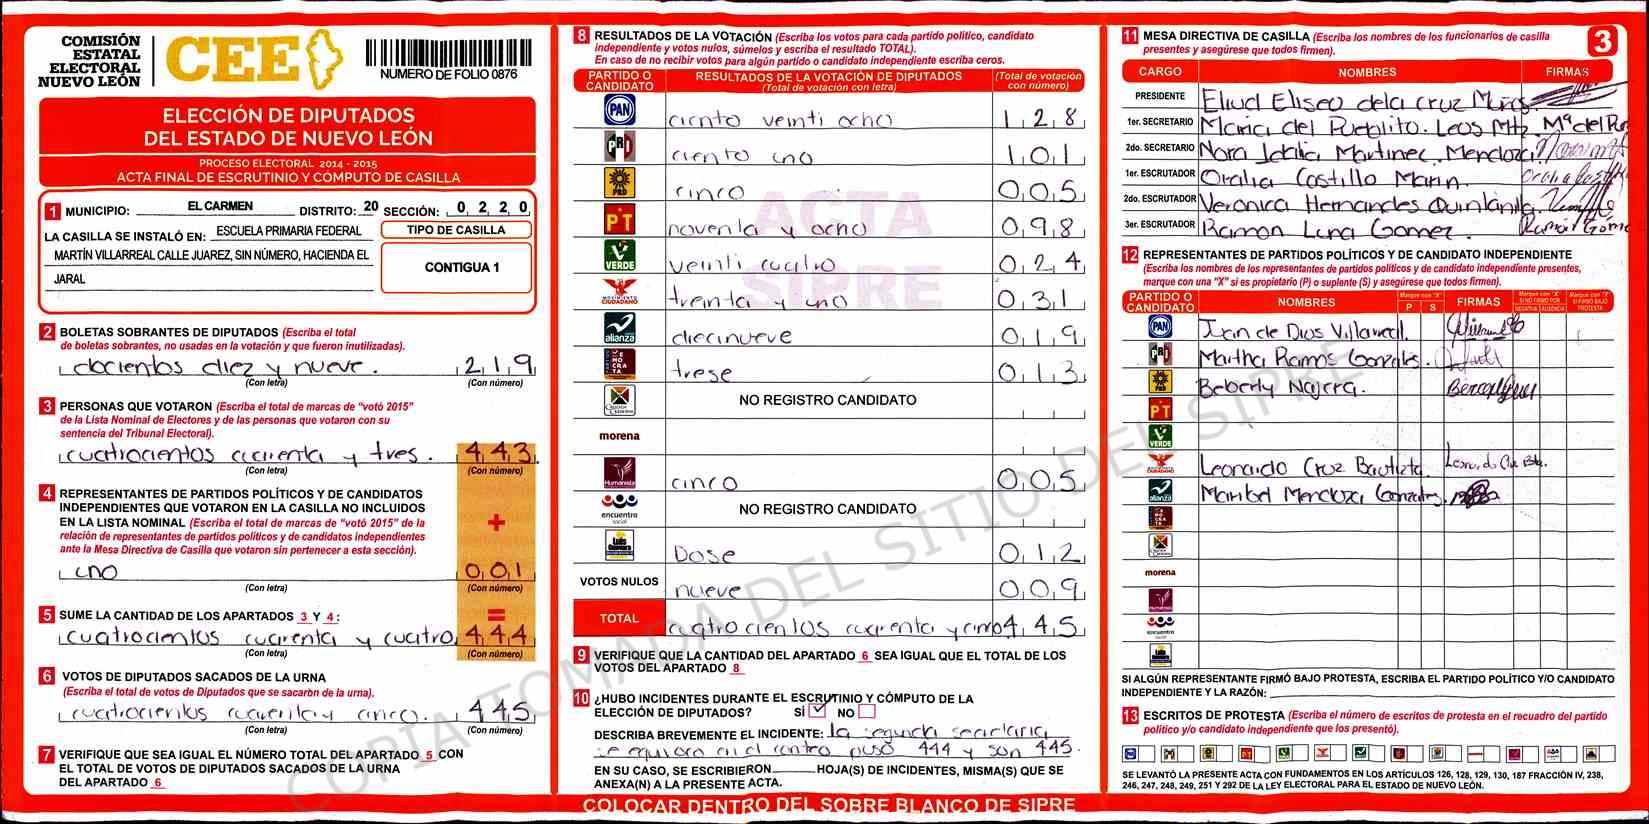 COMISIÓN
ESTATAL
ELECTORAL
NUEVO LEÓN
CEE
NUMERO DE FOLIO 0876
ELECCIÓN DE DIPUTADOS
DEL ESTADO DE NUEVO LEÓN
PROCESO ELECTORAL 2014 - 2015
ACTA FINAL DE ESCRUTINIO Y CÓMPUTO DE CASILLA
1 MUNICIPIO: EL CARMEN DISTRITO: 20 SECCIÓN: 0 2 2 0
LA CASILLA SE INSTALÓ EN: ESCUELA PRIMARIA FEDERAL
MARTÍN VILLARREAL CALLE JUAREZ, SIN NÚMERO, HACIENDA EL
JARAL
TIPO DE CASILLA
CONTIGUA 1
2 BOLETAS SOBRANTES DE DIPUTADOS (Escriba el total
de boletas sobrantes, no usadas en la votación y que fueron inutilizadas).
docientos diez y nueve. 2 1 9
(Con letra) (Con número)
3 PERSONAS QUE VOTARON (Escriba el total de marcas de "votó 2015"
de la Lista Nominal de Electores y de las personas que votaron con su
sentencia del Tribunal Electoral).
cuatrocientos cuarenta y tres. 4 4 3
(Con letra) (Con número)
4 REPRESENTANTES DE PARTIDOS POLÍTICOS Y DE CANDIDATOS
INDEPENDIENTES QUE VOTARON EN LA CASILLA NO INCLUIDOS
EN LA LISTA NOMINAL (Escriba el total de marcas de "votó 2015" de la
relación de representantes de partidos políticos y de candidatos independientes
ante la Mesa Directiva de Casilla que votaron sin pertenecer a esta sección).
+
uno 0 0 1
(Con letra) (Con número)
5 SUME LA CANTIDAD DE LOS APARTADOS 3 Y 4: =
cuatrocientos cuarenta y cuatro 4 4 4
(Con letra) (Con número)
6 VOTOS DE DIPUTADOS SACADOS DE LA URNA
(Escriba el total de votos de Diputados que se sacaron de la urna).
cuatrocientos cuarenta y cinco. 4 4 5
(Con letra) (Con número)
7 VERIFIQUE QUE SEA IGUAL EL NÚMERO TOTAL DEL APARTADO 5 CON
EL TOTAL DE VOTOS DE DIPUTADOS SACADOS DE LA URNA
DEL APARTADO 6
8 RESULTADOS DE LA VOTACIÓN (Escriba los votos para cada partido político, candidato
independiente y votos nulos, súmelos y escriba el resultado TOTAL).
En caso de no recibir votos para algún partido o candidato independiente escriba ceros.
PARTIDO O CANDIDATO RESULTADOS DE LA VOTACIÓN DE DIPUTADOS (Total de votación con letra) (Total de votación con número)
PAN ciento veinti ocho 1 2 8
PRI ciento uno 1 0 1
PRD cinco 0 0 5
PT noventa y ocho 0 9 8
VERDE veinti cuatro 0 2 4
MOVIMIENTO CIUDADANO treinta y uno 0 3 1
alianza diecinueve 0 1 9
DEMOCRATA trese 0 1 3
NO REGISTRO CANDIDATO
morena
Humanista cinco 0 0 5
encuentro social NO REGISTRO CANDIDATO
Luis Dose 0 1 2
VOTOS NULOS nueve 0 0 9
TOTAL cuatrocientos cuarenta y cinco 4 4 5
ACTA
SIPRE
9 VERIFIQUE QUE LA CANTIDAD DEL APARTADO 6 SEA IGUAL QUE EL TOTAL DE LOS
VOTOS DEL APARTADO 8
10 ¿HUBO INCIDENTES DURANTE EL ESCRUTINIO Y CÓMPUTO DE LA
ELECCIÓN DE DIPUTADOS? SÍ ✓ NO
DESCRIBA BREVEMENTE EL INCIDENTE: la segunda secretaria
se equiboro en el contro puso 444 y son 445.
EN SU CASO, SE ESCRIBIERON HOJA(S) DE INCIDENTES, MISMA(S) QUE SE
ANEXA(N) A LA PRESENTE ACTA.
COLOCAR DENTRO DEL SOBRE BLANCO DE SIPRE
COPIA TOMADA DEL SITIO DEL SIPRE
11 MESA DIRECTIVA DE CASILLA (Escriba los nombres de los funcionarios de casilla
presentes y asegúrese que todos firmen). 3
CARGO NOMBRES FIRMAS
PRESIDENTE Eliud Eliseo dela cruz Muñoz
1er. SECRETARIO Maria del Pueblito. Leos Mtz. Mª del
2do. SECRETARIO Nora Idalia Martinez Mendoza
1er. ESCRUTADOR Oralia Castillo Marin. Oralia
2do. ESCRUTADOR Veronica Hernandes Quintanilla
3er. ESCRUTADOR Ramon Luna Gomez. Ramón Góm
12 REPRESENTANTES DE PARTIDOS POLÍTICOS Y DE CANDIDATO INDEPENDIENTE
(Escriba los nombres de los representantes de partidos políticos y de candidato independiente presentes,
marque con una "X" si es propietario (P) o suplente (S) y asegúrese que todos firmen).
PARTIDO O CANDIDATO NOMBRES Marque con "X" P S FIRMAS Marque con "X" SI NO FIRMÓ POR NEGATIVA AUSENCIA Marque con "X" SI FIRMÓ BAJO PROTESTA
PAN Juan de Dios Villarreal.
PRI Martha Ramos Gonzales.
PRD Beberly Najera.
PT
VERDE
Leonardo Cruz Bautista
alianza Maribel Mendoza Gonzales.
morena
Humanista
encuentro social
SI ALGÚN REPRESENTANTE FIRMÓ BAJO PROTESTA, ESCRIBA EL PARTIDO POLÍTICO Y/O CANDIDATO
INDEPENDIENTE Y LA RAZÓN:
13 ESCRITOS DE PROTESTA (Escriba el número de escritos de protesta en el recuadro del partido
político y/o candidato independiente que los presentó).
SE LEVANTÓ LA PRESENTE ACTA CON FUNDAMENTOS EN LOS ARTÍCULOS 126, 128, 129, 130, 187 FRACCIÓN IV, 238,
246, 247, 248, 249, 251 Y 292 DE LA LEY ELECTORAL PARA EL ESTADO DE NUEVO LEÓN.